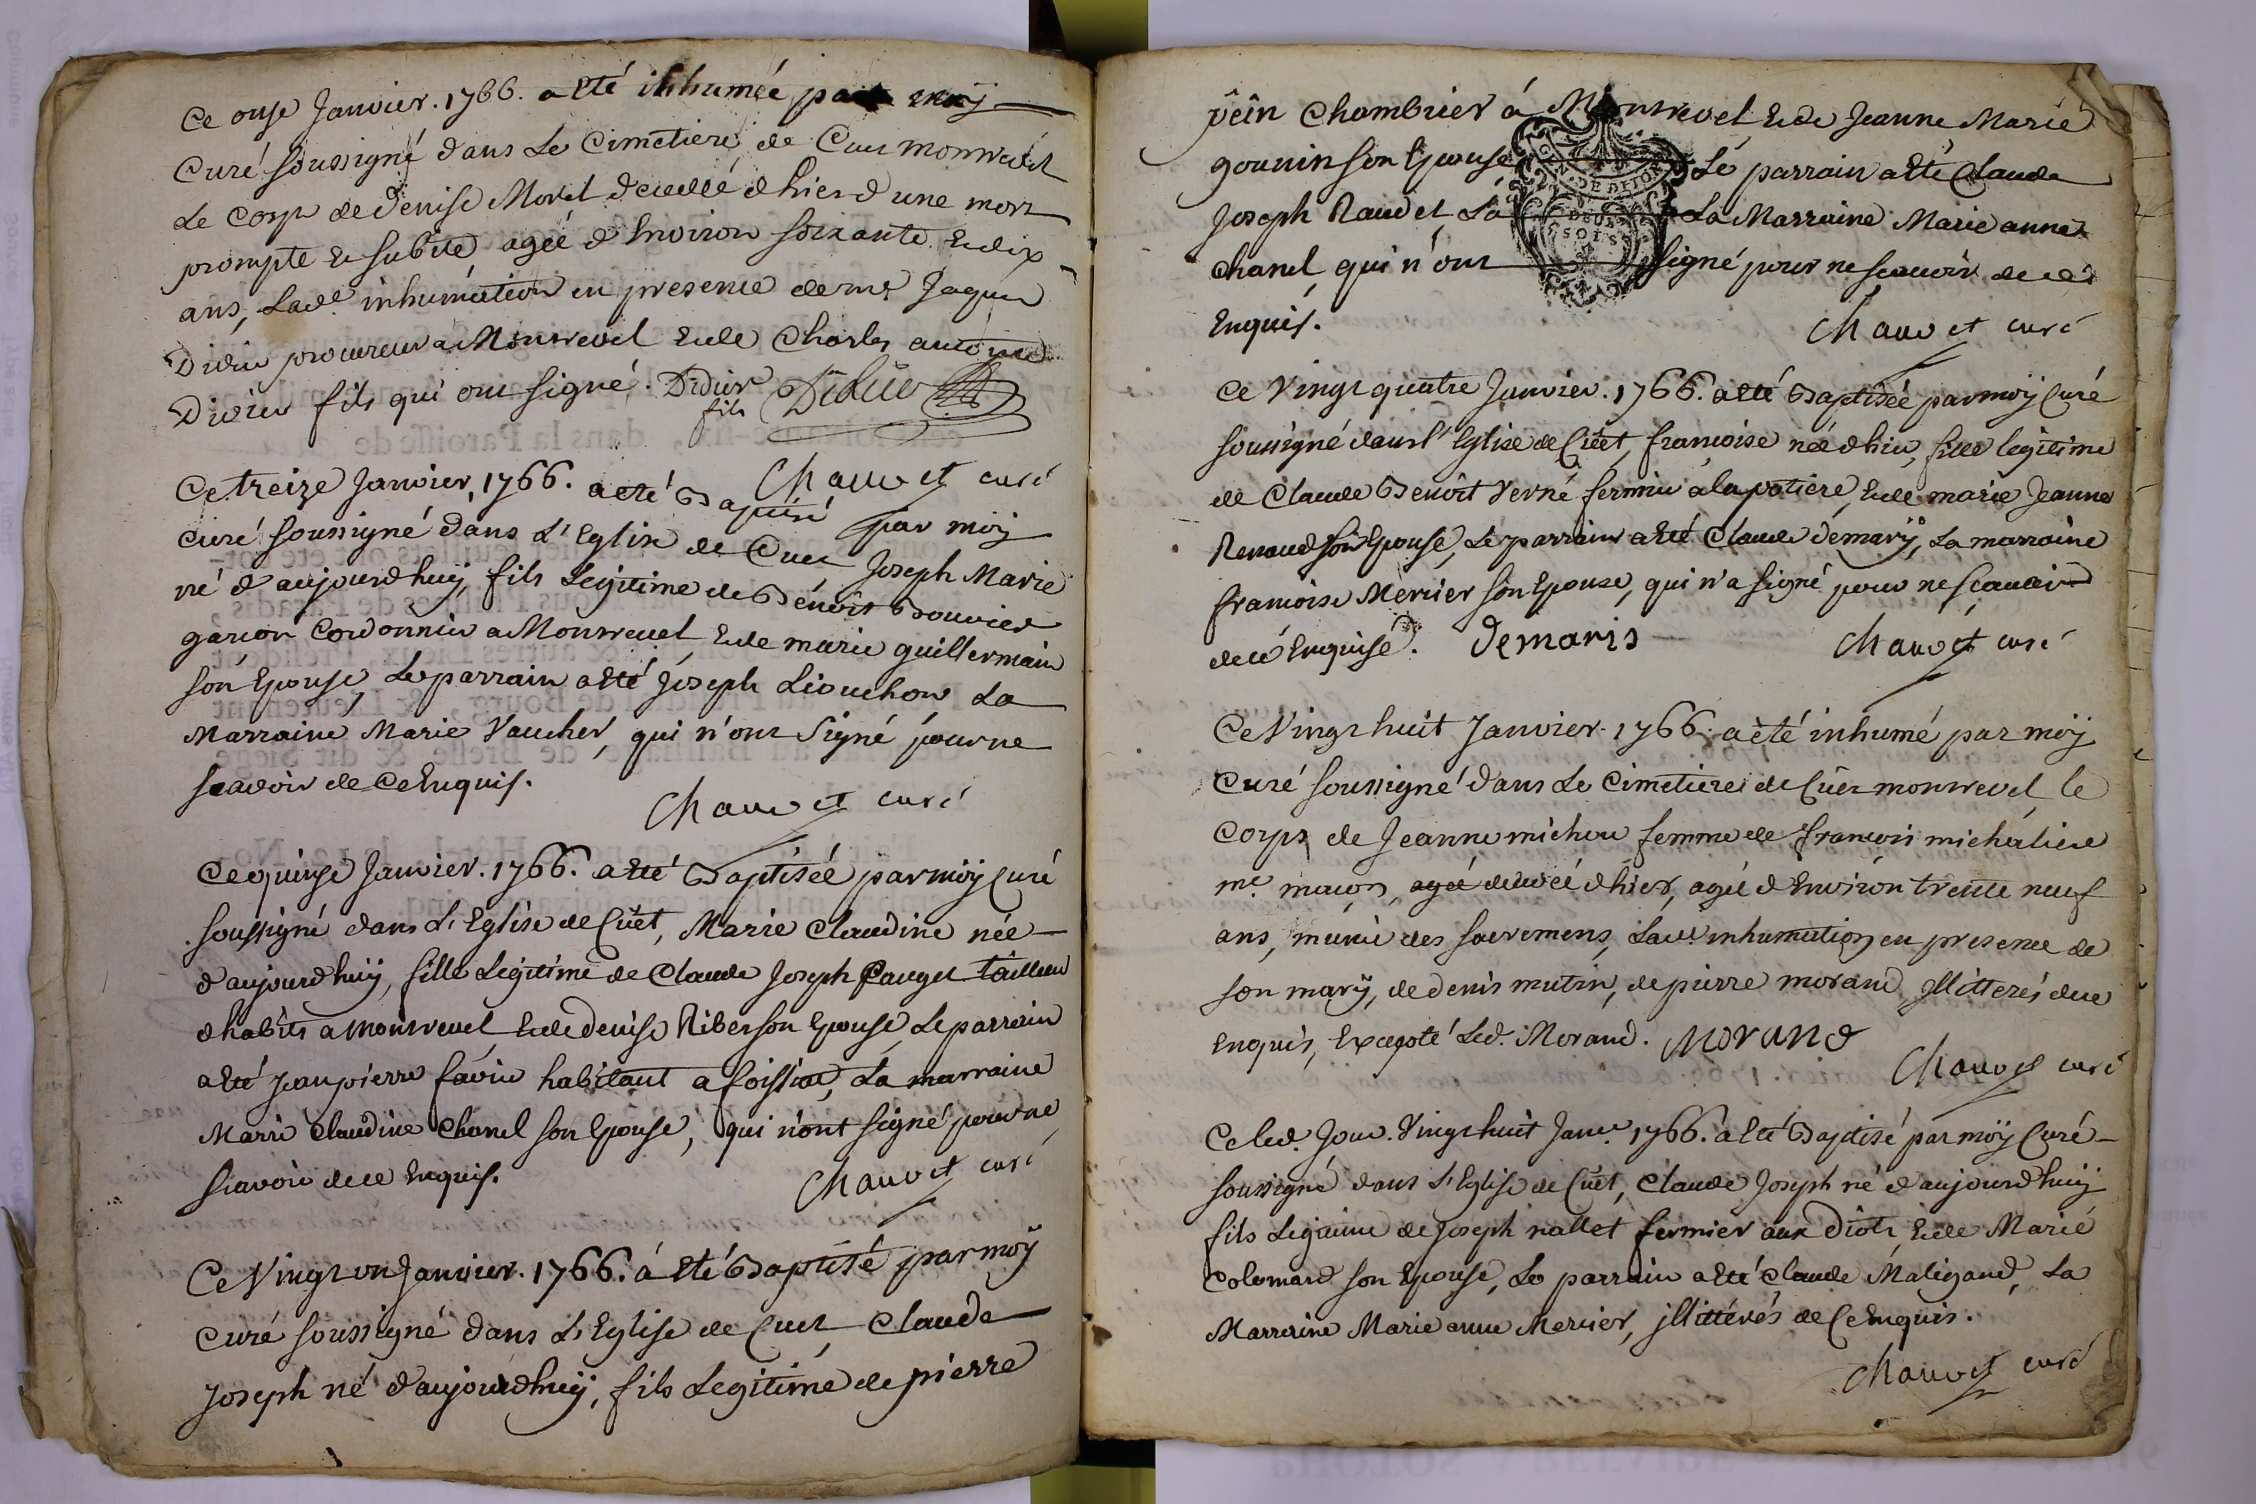 Ce onze Janvier. 1766. a eté inhumée par moÿ
Curé soussigné dans Le Cimetiere de Cuet monrevel
Le corps de denise Morel decedée d'hier d'une mort
prompte et subite agée d'environ soixante et dix
ans, Lad.e inhumation en presence de me Jaques
Didier procureur a Monrevel et de Charles antoine
Didier fils qui ont signé. Didier Didier
fils
Chauvet curé
Ce treize Janvier, 1766. a eté Baptisé par moÿ
curé soussigné dans L'Eglise de Cuet Joseph Marie
né d'aujourdhuÿ, fils Legitime de Bénoit Bouvier
garçon Cordonnier a Monrevel et de marie guillermain
són Epouse, Le parrain a eté Joseph Liouchon La
Marraine Marie Vaucher, qui n'ont Signé pour ne
scavoir de ce Enquis.
Chauvet curé
Ce quinze Janvier. 1766. a eté Baptisée par moÿ Curé
soussigné dans L'Eglise de Cuet, Marie Claudine née
d'aujourdhuÿ, fille Legitime de Claude Joseph Pauget tailleur
d'habits a Monrevel et de denise Riber son Epouse, Le parrain
a eté Jean pierre favier habitant a foissiat, La marraine
Marie Claudine Chanel son Epouse, qui n'ont signé pour ne
scavoir de ce Enquis.
Chauvet curé
Ce Vingt un Janvier. 1766. á Eté Baptisé par moÿ
Curé soussigné dans L'Eglise de Cuet Claude
Joseph né d'aujourdhuÿ, fils Legitime de pierre
pëin Chambrier á Monrevel et de Jeanne Marie
gounin son Epouse Le parrain a eté Claude
Joseph Raudet La La Marraine Marie anne
Chanel qui n'ont signé pour ne scavoir de ce
Enquis.
GEN. DE DIJON
DEUX
SOLS
Chauvet curé
Ce Vingt quatre Janvier. 1766. a eté Baptisée par moÿ Curé
soussigné dans l'Eglise de Cuet, francoise née d'hier, fille legitime
de Claude Benoit Verne fermier a la potiere, et de marie Jeanne
Renaud son Epouse, Le parrain a eté Claude demarÿ, La marraine
francoise Mercier son Epouse, qui n'a signé pour ne scavoir
de ce Enquise. demaris Chauvet curé
Ce Vingt huit Janvier. 1766. a èté inhumé par moÿ
Curé soussigné dans Le Cimetiere de Cuet monrevel le
Corps de Jeanne michou femme de francois michaliere
me. maçon, agée decedée d'hier, agée d'Environ trente neuf
ans, munie des sacremens, Lade. inhumation en presence de
son marÿ, de denis mutin, de pierre morand jllitterés de ce
Enquis, Excepté Led. Morand. MORAND
Chauvet curé
Ce led. Jour. Vingt huit Janv. 1766. a Eté Baptisé par moÿ Curé
soussigné dans L'Eglise de Cuet, Claude Joseph né d'aujourdhuÿ
fils Legitime de Joseph nallet fermier aux diots, et de Marie
Colomard son Epouse, Le parrain a eté Claude Maligand, La
Marraine Marie anne Mercier, jllittérés de Ce enquis.
Chauvet curé